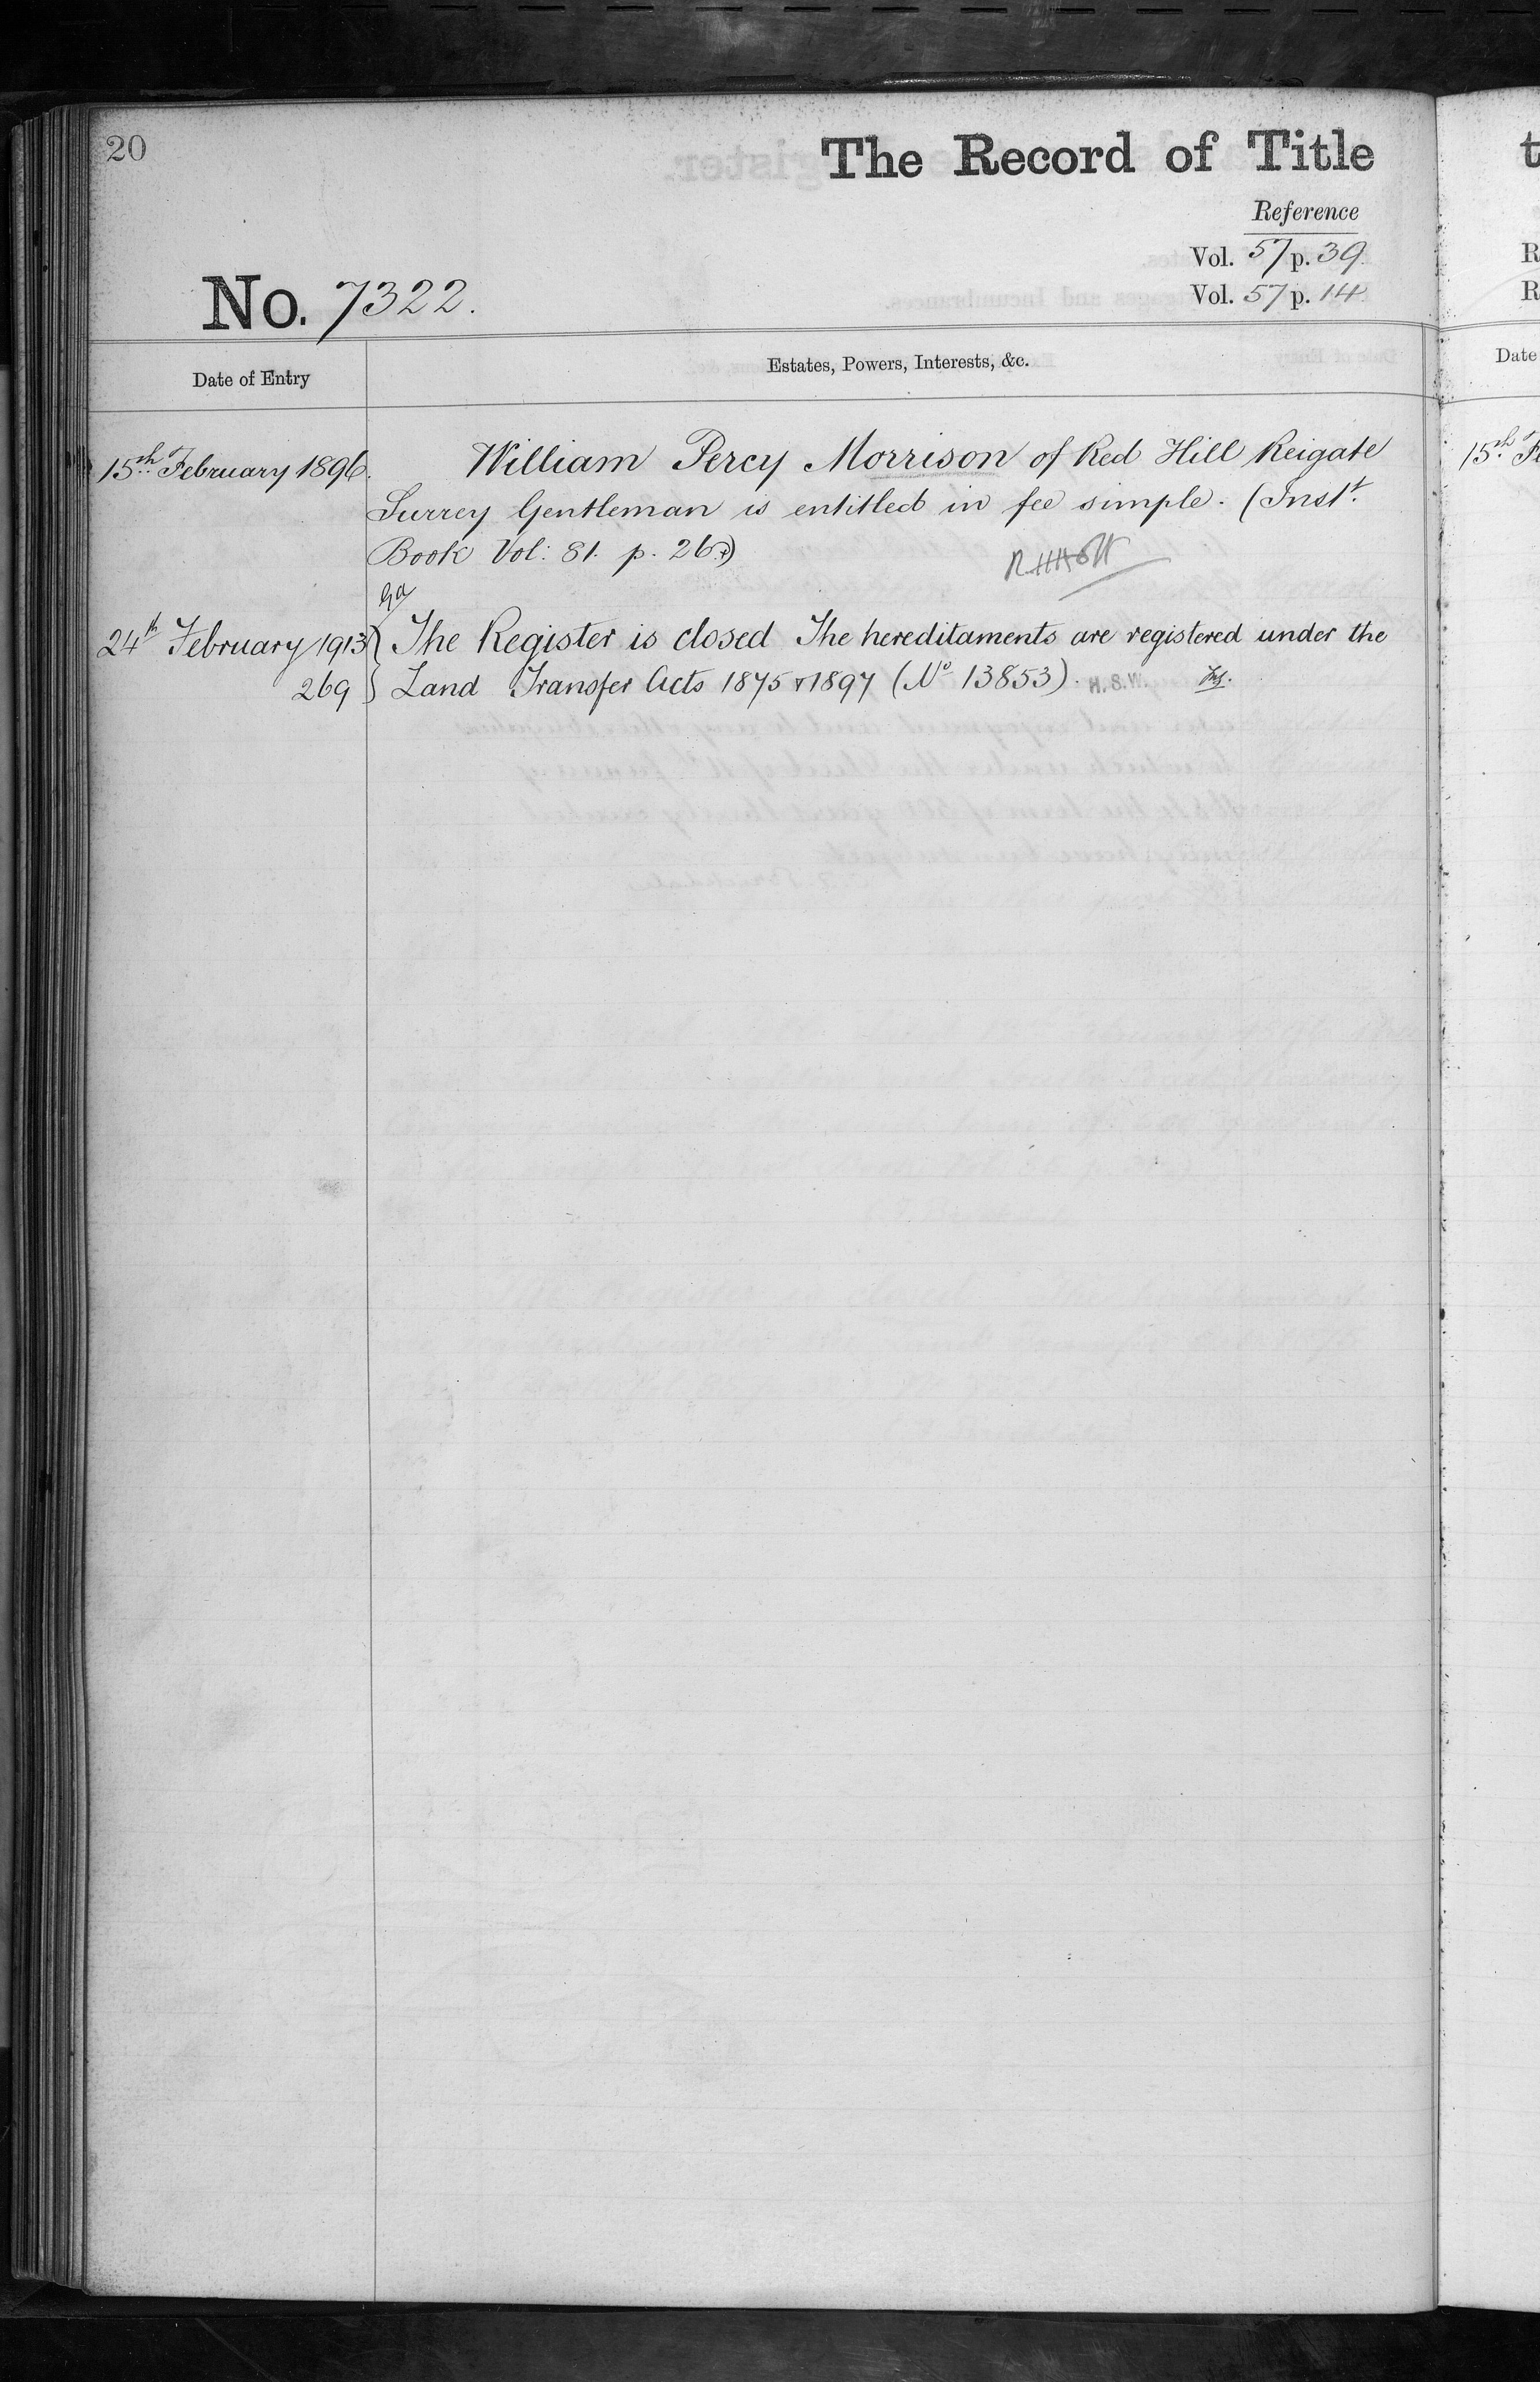 20
The Record of Title
Reference
Vol. 57 p. 39
Vol. 57 p. 14
No. 7322.
Date of Entry
Estates, Powers, Interests, &c.
15th February 1896. William Percy Morrison of Red Hill Reigate
Surrey Gentleman is entitled in fee simple. (Inst.
Book Vol: 81. p. 26
24th February 1913 The Register is closed The hereditaments are registered under the
269 Land Transfer Acts 1875 & 1897 (No 13853). H.S.W.
t
R
R
Date
15th Fe